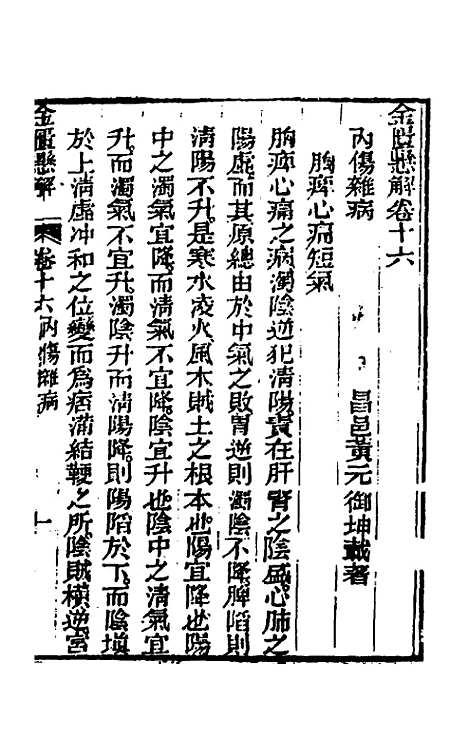 金匱懸解卷十六
昌邑黃元御坤載著
內傷雜病
胸痹心痛短氣
胸痹心痛之病濁陰逆犯清陽責在肝腎之陰盛心肺之
陽虛而其原總由於中氣之敗胃逆則濁陰不降脾陷則
清陽不升是寒水凌火風木賊土之根本也陽宜降也陽
中之濁氣宜降而清氣不宜降陰宜升也陰中之清氣宜
升而濁氣不宜升濁陰升而清陽降則陽陷於下而陰填
於上清虛沖和之位變而為痞滿結鞕之所陰賊橫逆宮
金匱懸解 卷十六 內傷雜病 一